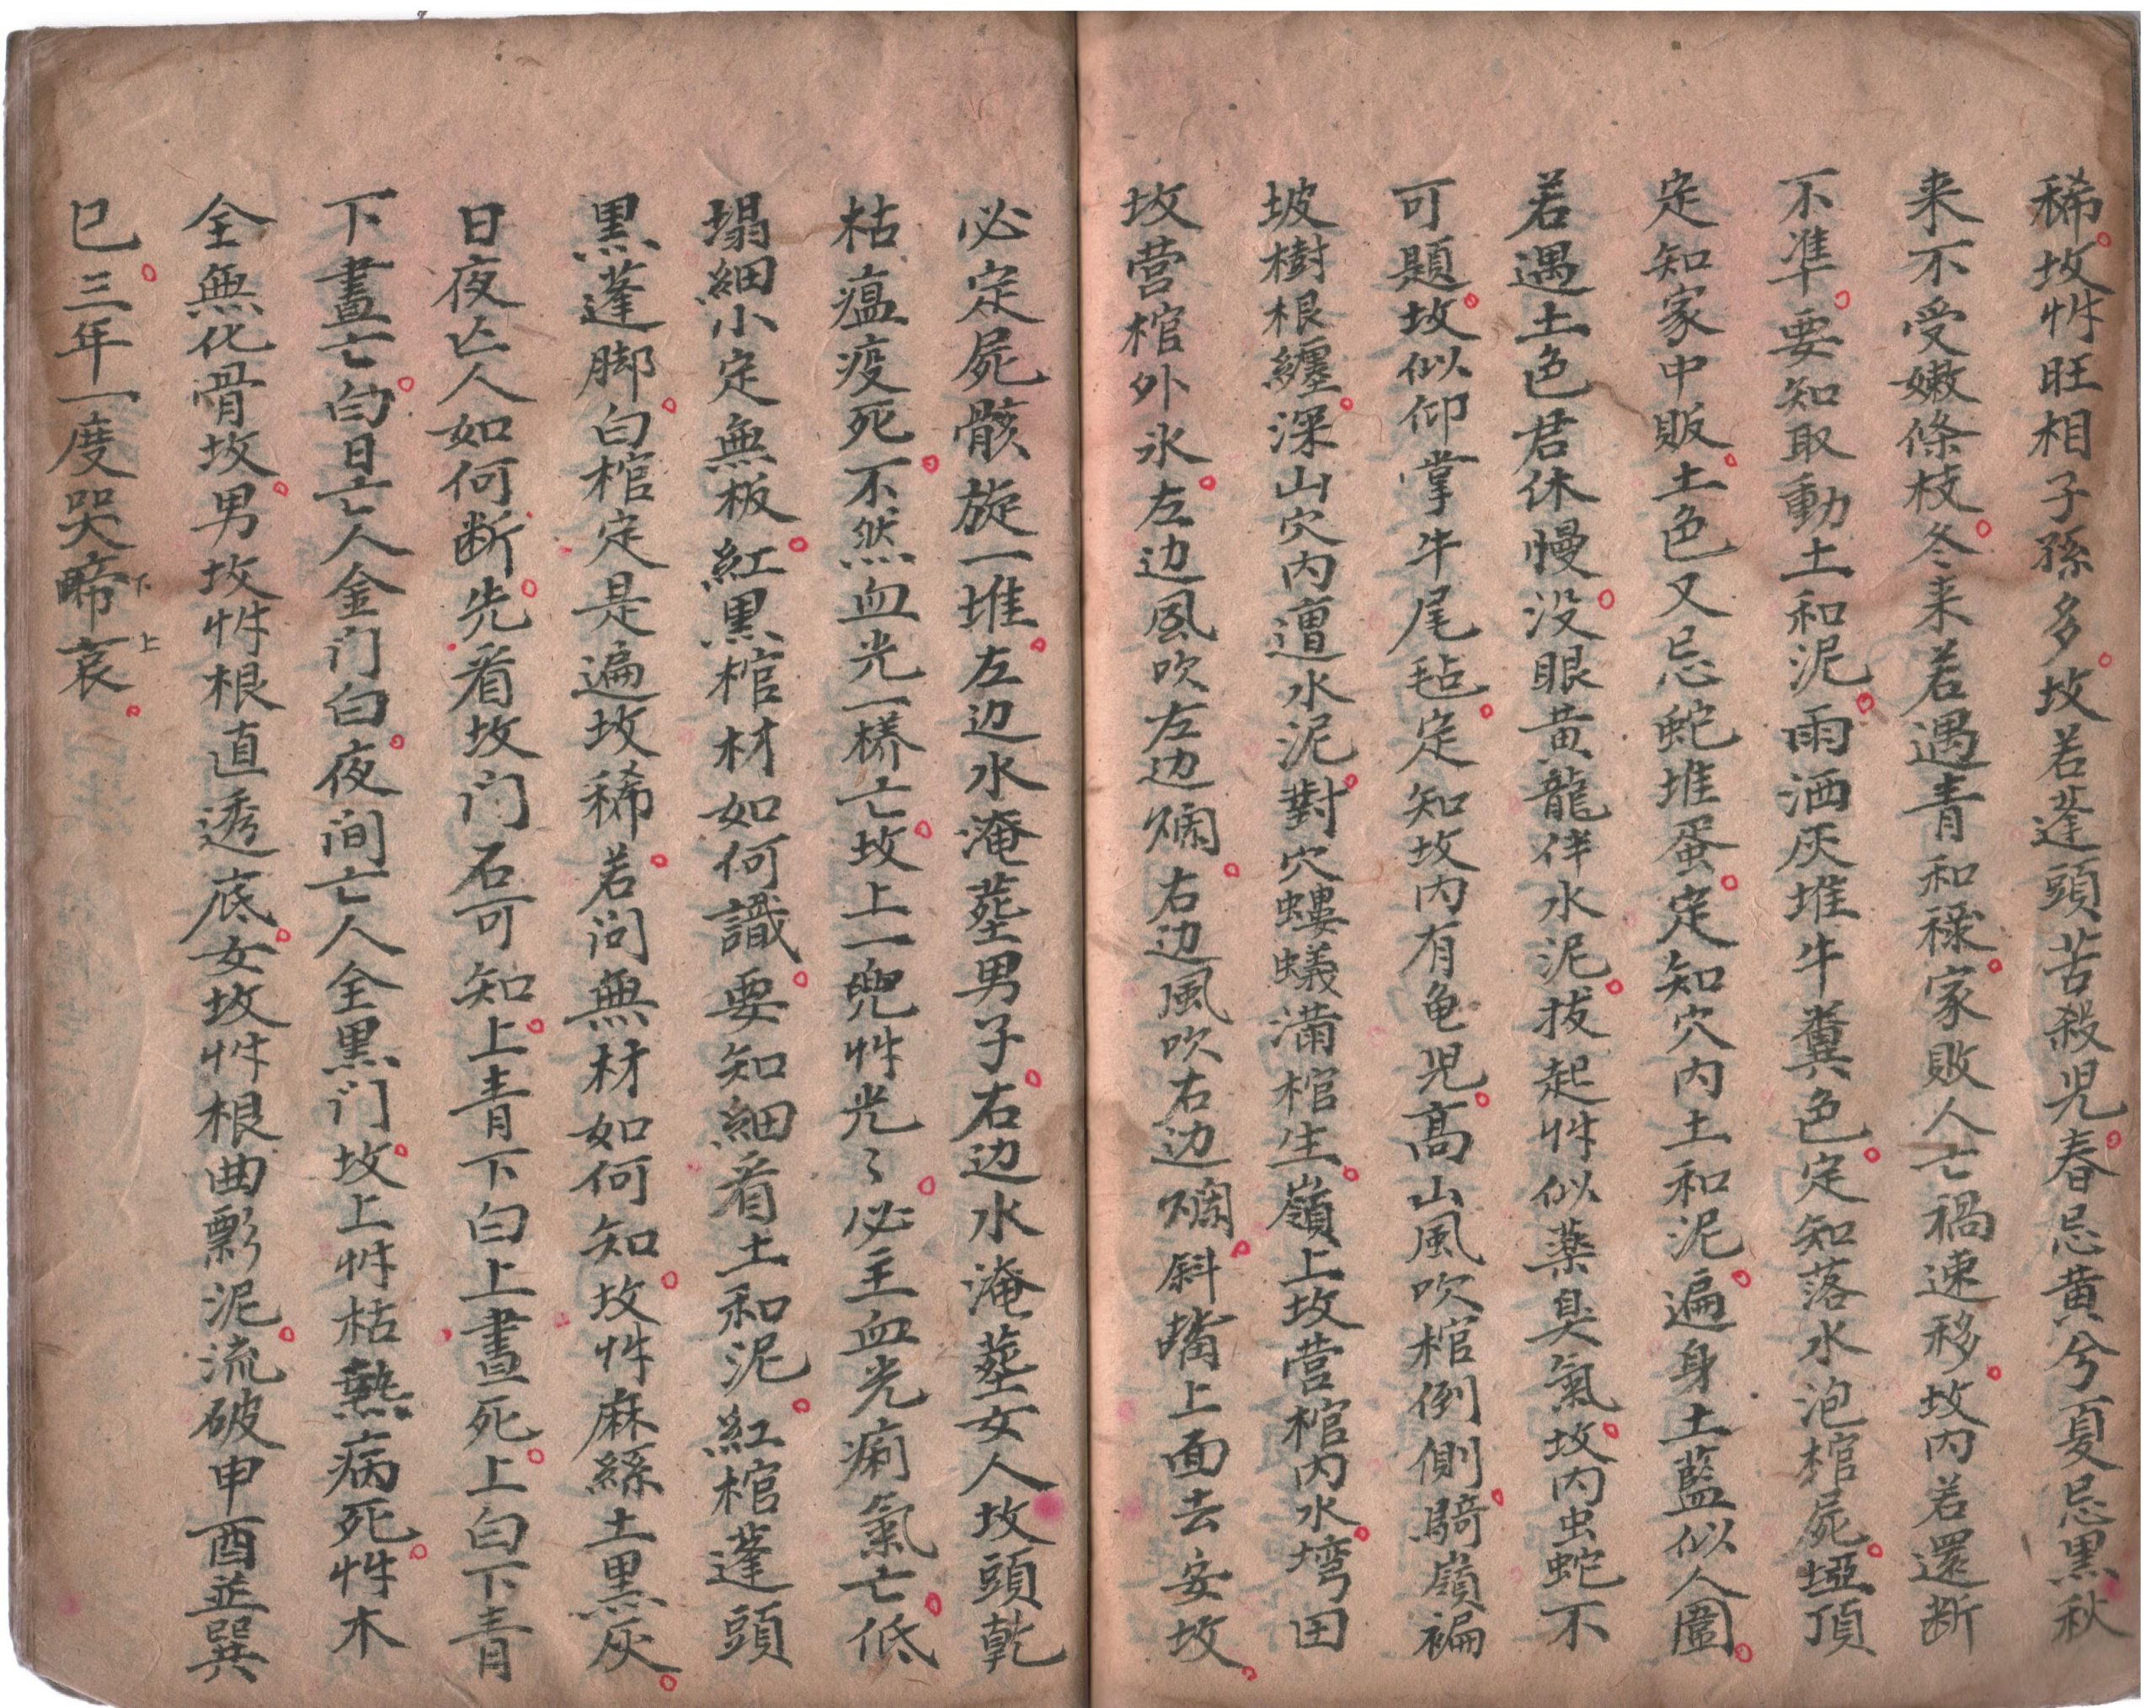 稀坟艸旺相子孫多坟若蓬頭苦殺児春忌黄兮夏忌黒秋
来不受嫩條枝冬来若遇青和祿家敗人亡禍速移坟内若還断
不準要知取動土和泥雨洒灰堆牛糞色定知落水泡棺屍埡頂
定知家中販土色又忌蛇堆蛋定知穴内土和泥遍身土藍似人圖
若遇土色君休慢没眼黄龍伴水泥拔起艸似薬臭氣坟内虫蛇不
可題坟似仰掌牛尾毡定知坟内有龟児高山風吹棺倒側騎嶺褊
坡樹根纏深山穴内遭水泥對穴螻蟻满棺生嶺上坟营棺内水塆田
坟营棺外水左边風吹左边爛右边風吹右边爛斜觜上面去安坟
必定屍骸旋一堆左边水淹塟男子右边水淹塟女人坟頭乾
枯瘟疫死不然血光一樣亡坟上一兜艸光〻必主血光痢氣亡低
塌細小定無板紅黒棺材如何識要知細看土和泥紅棺蓬頭
黒蓬脚白棺定是遍坟稀若问無材如何知坟艸麻絲土黒灰
日夜亡人如何断先看坟门石可知上青下白上晝死上白下青
下晝亡白日亡人金门白夜间亡人全黒门坟上艸枯熱病死艸木
全無化骨坟男坟艸根直透底女坟艸根曲影泥流破申酉並巽
巳三年一度哭啼哀
下上